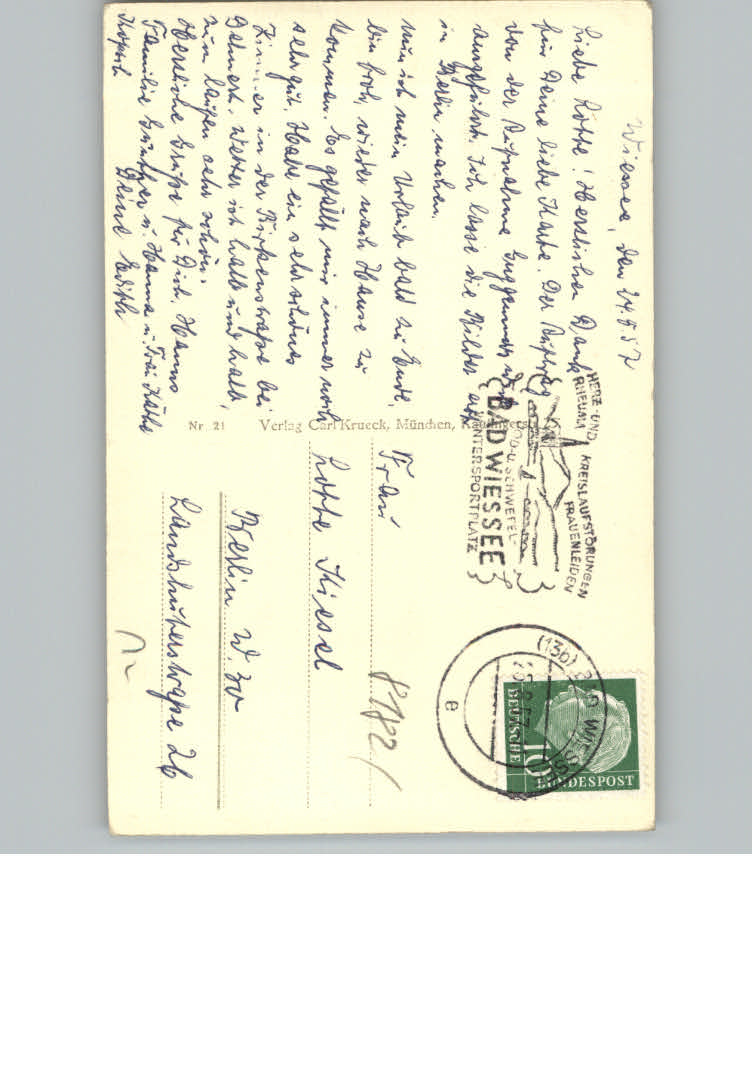 Wiessee, den 24.8.57
Liebe Lotte! Herzlichen Dank
für Deine liebe Karte. Der Auftrag
von der Aufnahme Guggemos wird
ausgeführt. Ich lasse die Bilder erst
in Berlin machen.
Nun ist mein Urlaub bald zu Ende,
bin froh, wieder nach Hause zu
kommen. Es gefällt mir immer noch
sehr gut. Habe ein sehr schönes
Zimmer in der Birkenstraße bei
Wetter ist halb und halb,
zum laufen sehr schön.
Herzliche Grüße für Dich, Hanns
Familie Günther u. Hanna u. Frau Käthe
Deine Edith
Nr. 21
Verlag Carl Krueck, München,
HERZ- UND KREISLAUFSTÖRUNGEN
RHEUMA FRAUENLEIDEN
JOD- U. SCHWEFEL-
BAD WIESSEE
WINTERSPORTPLATZ
(13b) BAD WIESSEE
e
DEUTSCHE
BUNDESPOST
10
Frau
Lotte Kiesel
Berlin W. 30
Landshuterstraße 26
8182/